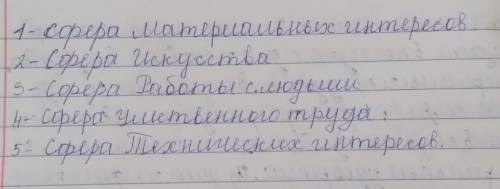 1- Сфера материальных интересов.
2- Сфера Искусства
3- Сфера Работы с людьми
4- Сфера умственного труда.
5- Сфера Технических интересов.